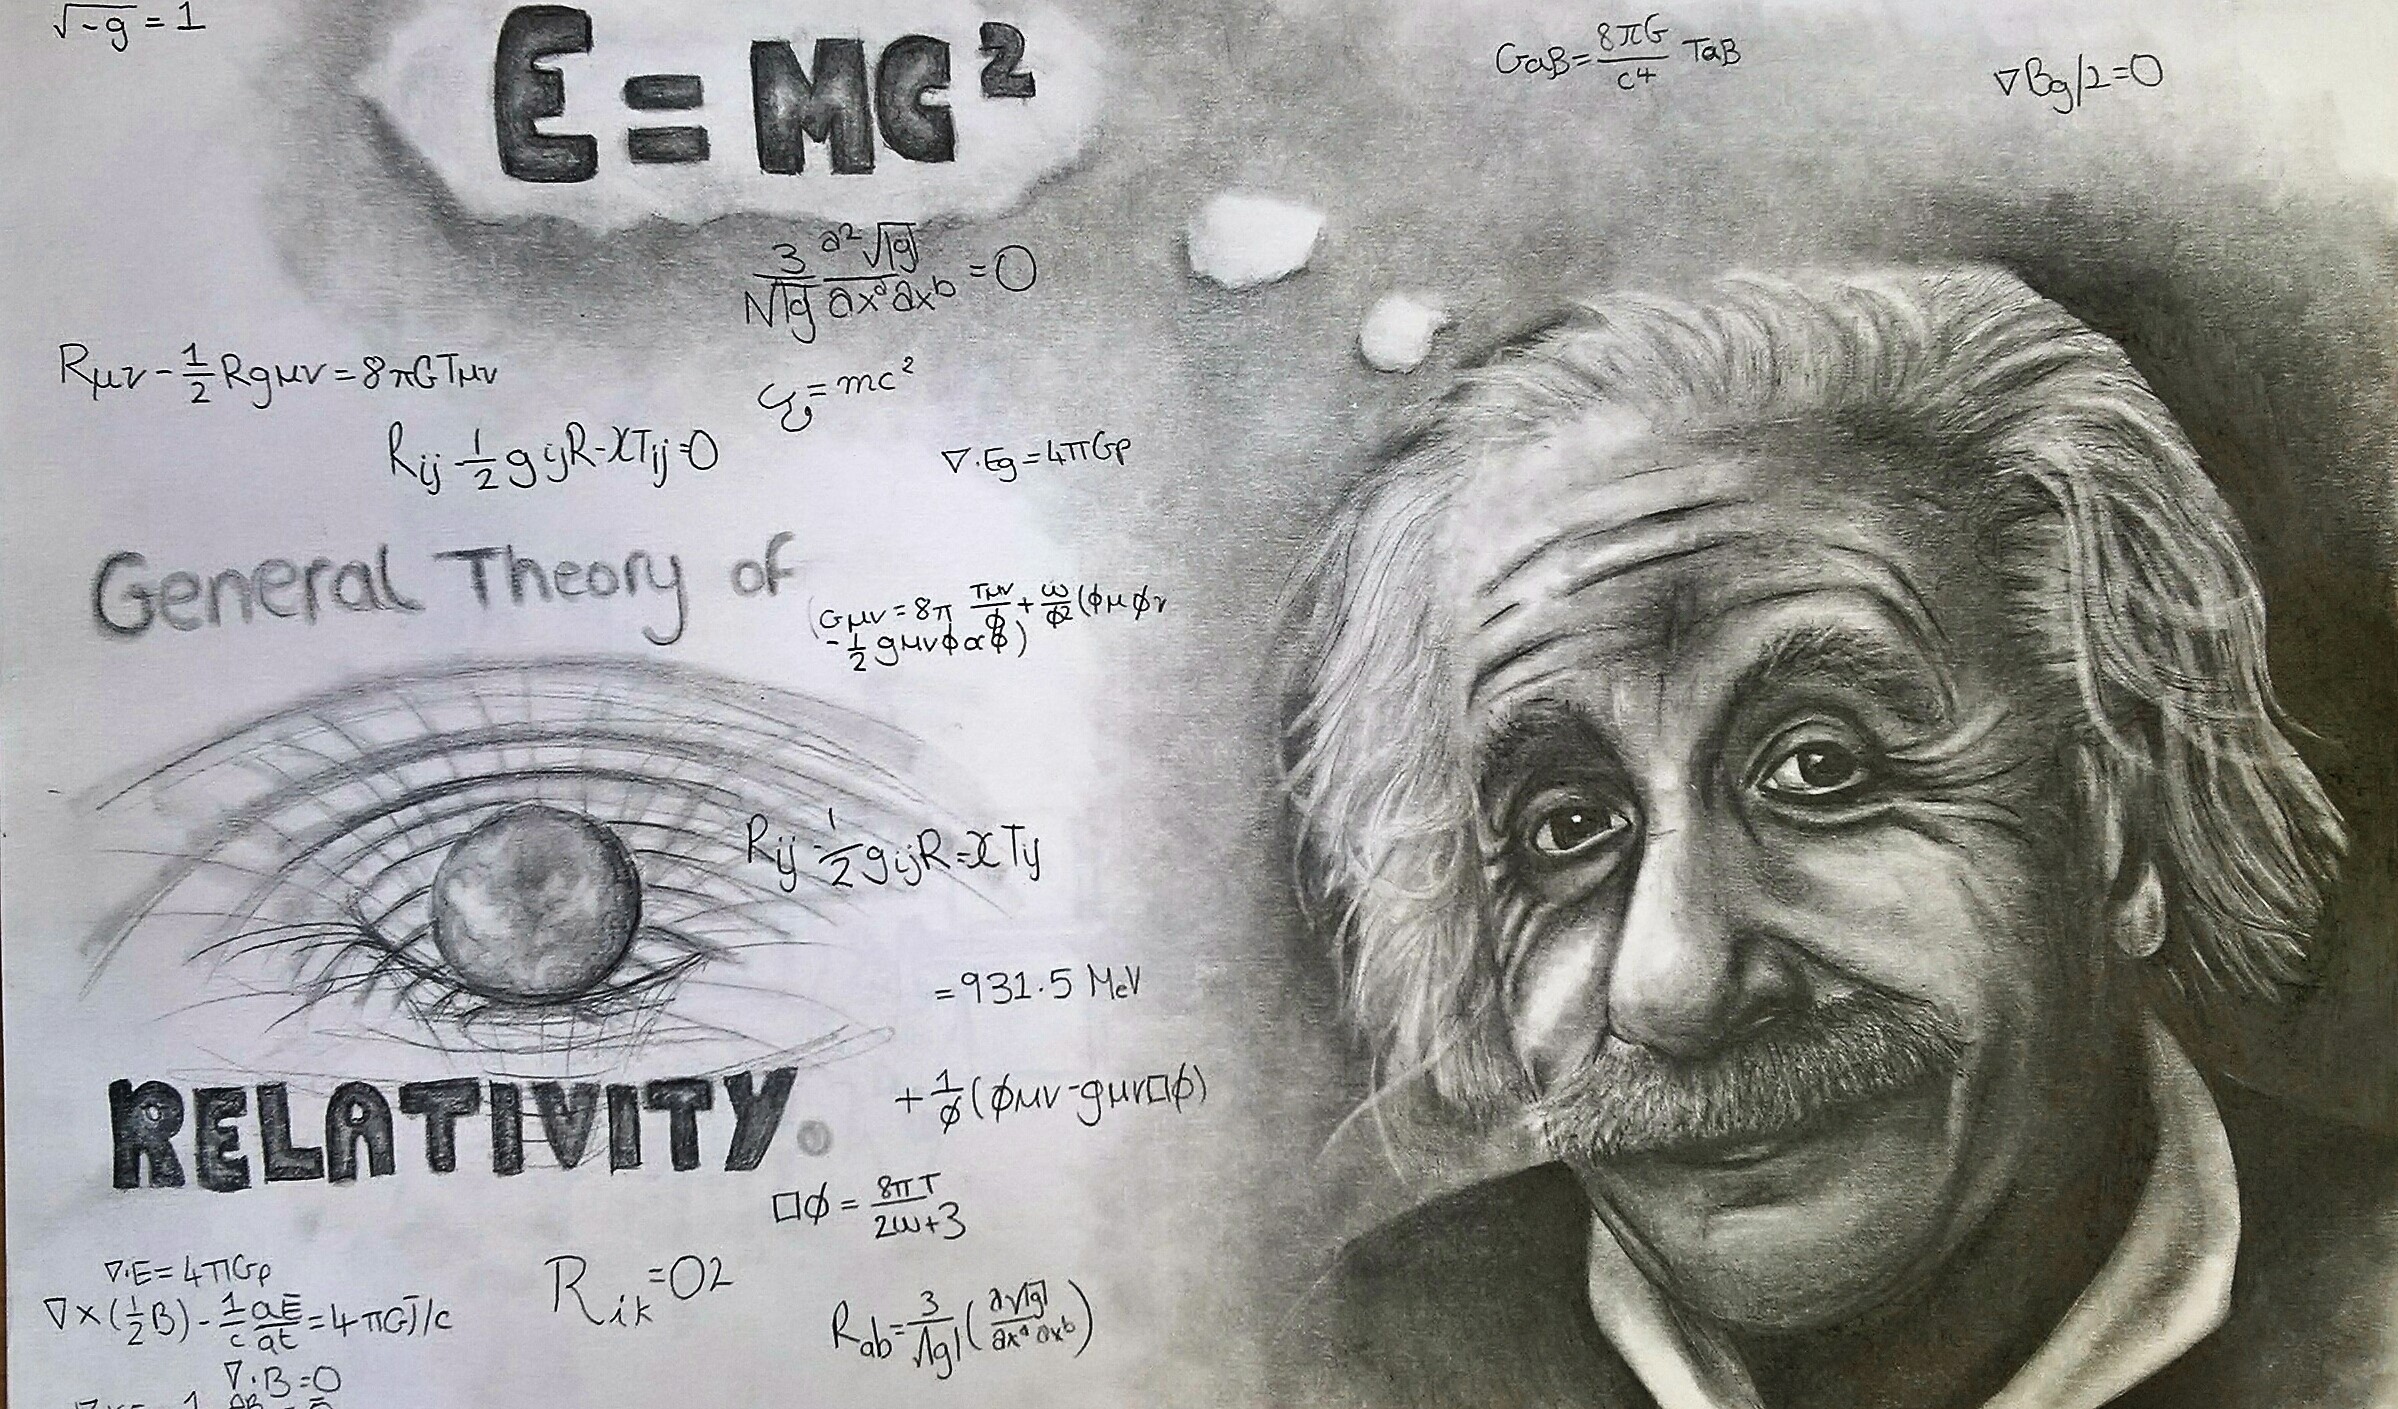 √-g = 1
E = MC²
GaB = 8πG/c4 TaB
∇Bg/2=0
3/√|g| ∂²√|g|/∂xᵃ∂xᵇ = 0
Rμν - 1/2 Rgμν = 8πGTμν
= mc²
Rij - 1/2 gijR - χTij = 0
∇·Eg = 4πGρ
General Theory of
Gμν = 8π Tμν/ϕ + ω/ϕ2 (ϕμϕν
- 1/2 gμνϕαϕ)
Rij - 1/2 gijR = χTij
= 931.5 MeV
RELATIVITY.
+ 1/ϕ (ϕμν - gμν□ϕ)
□ϕ = 8πT/2ω+3
∇·E = 4πGρ
Rik = 02
∇×(1/2 B) - 1/c ∂E/∂t = 4πGJ/c
Rab = 3/√|g| (∂√|g|/∂xᵃ∂xᵇ)
∇·B = 0